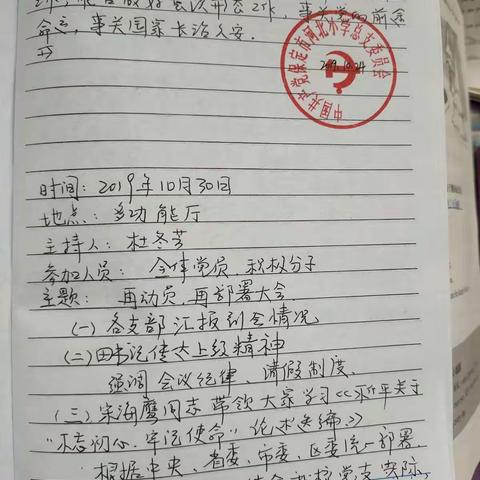 命运，事关国家长治久安。
中国共产党保定市河北小学总支委员会
2019.10.24
时间：2019年10月30日
地点：多功能厅
主持人：杜冬芳
参加人员：全体党员、积极分子
主题：再动员、再部署大会
（一）各支部汇报到会情况
（二）田书记传达上级精神
强调 会议纪律、请假制度。
（三）宋海鹰同志带领大家学习《习近平关于
“不忘初心、牢记使命”论述选编》
根据中央、省委、市委、区委统一部署，